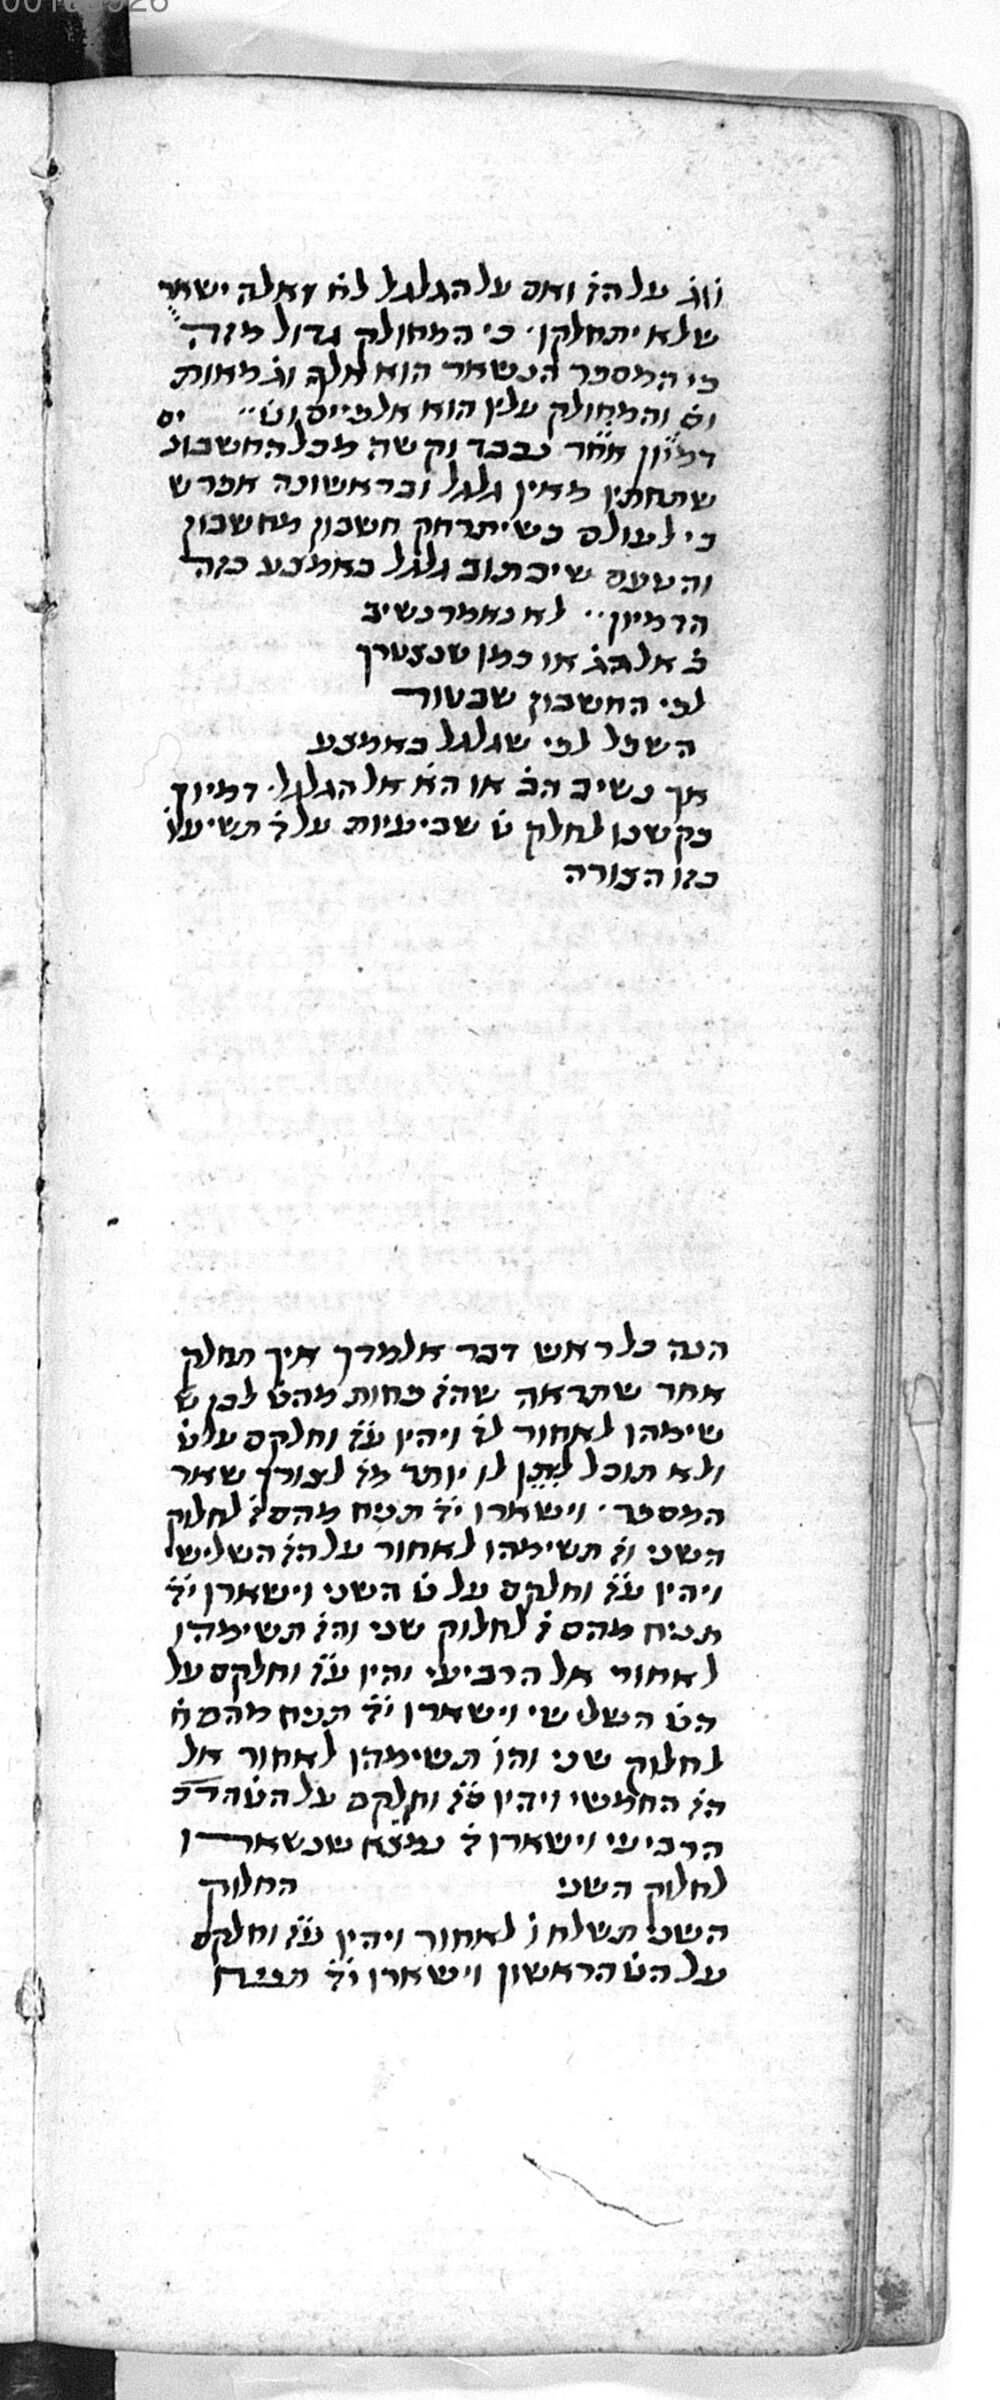 וג על הז ואם על הגלגל לח ואלה ישאר
שלא יתחלקו כי המחולק גדול מזה
כי המספר הנשאר הוא אלף וג מאות
וס והמחולק עליו הוא אלפיים וט יס
דמיון אחר נכבד וקשה מכל החשבונ
שתחתיו מאין גלגל ובראשונה אפרש
כי לעולם כשיתרחק חשבון מחשבון
והטעם שיכתוב גלגל באמצע כזה
הדמיון לא נאמר נשיב
ב אל הג או כמו שנצטרך
לפי החשבון שבטור
השפל לפי שגלגל באמצע
אך נשיב הב או הא אל הגלגל דמיון
בקשנו לחלק ט שביעיות על ד תשיעיו
כזו הצורה
הנה כל ראש דבר אלמדך איך תחלק
אחר שתראה שהז פחות מהט לכן ש
שימהו לאחור לז ויהיו עז וחלקם על ט
ולא תוכל ליתן לו יותר מז לצורך שאר
המספר וישארו יד תניח מהם ז לחלוק
השני וז תשימהו לאחור על הז השלישי
ויהיו עז וחלקם על ט השני וישארו יד
תניח מהם ז לחלוק שני והז תשימהו
לאחור אל הרביעי יהיו עז וחלקם על
הט השלישי וישארו יד תניח מהם ח
לחלוק שני והו תשימהו לאחור אל
הז החמשי ויהיו סז וחלקם על הט הרב
הרביעי וישארו ד נמצא שנשארו
לחלוק השני החלוק
השני תשלח ז לאחור ויהיו עז וחלקם
על הט הראשון וישארו יד תניח